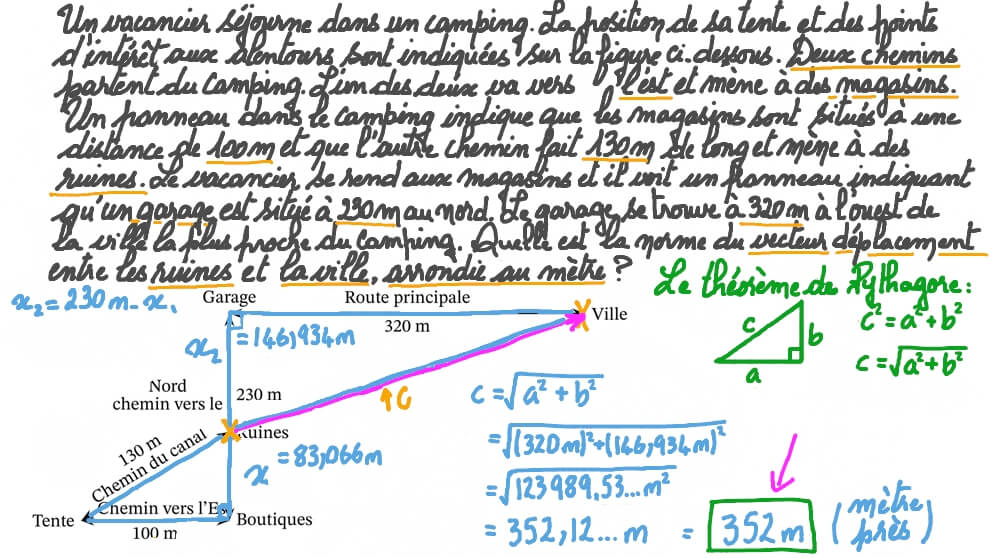 Un vacancier séjourne dans un camping. La position de sa tente et des points
d'intérêt aux alentours sont indiquées sur la figure ci. dessous. Deux chemins
partent du camping. L'un des deux va vers l'est et mène à des magasins.
Un panneau dans le camping indique que les magasins sont situés à une
distance de 100m et que l'autre chemin fait 130m de long et mène à des
ruines. Le vacancier se rend aux magasins et il voit un panneau indiquant
qu'un garage est situé à 230m au nord. Le garage se trouve à 320m à l'ouest de
la ville la plus proche du camping. Quelle est la norme du vecteur déplacement
entre les ruines et la ville, arrondie au mètre ?
Le théorème de Pythagore:
x₂ = 230m - x₁
Garage
Route principale
320 m
Ville
c
b
a
c² = a² + b²
c = √a² + b²
x₂
= 146,934m
Nord
chemin vers le
230 m
C
Ruines
130 m
Chemin du canal
x
= 83,066m
Chemin vers l'Est
Tente
100 m
Boutiques
c = √a² + b²
= √(320m)² + (146,934m)²
= √123989,53...m²
= 352,12...m = 352m (mètre
près)